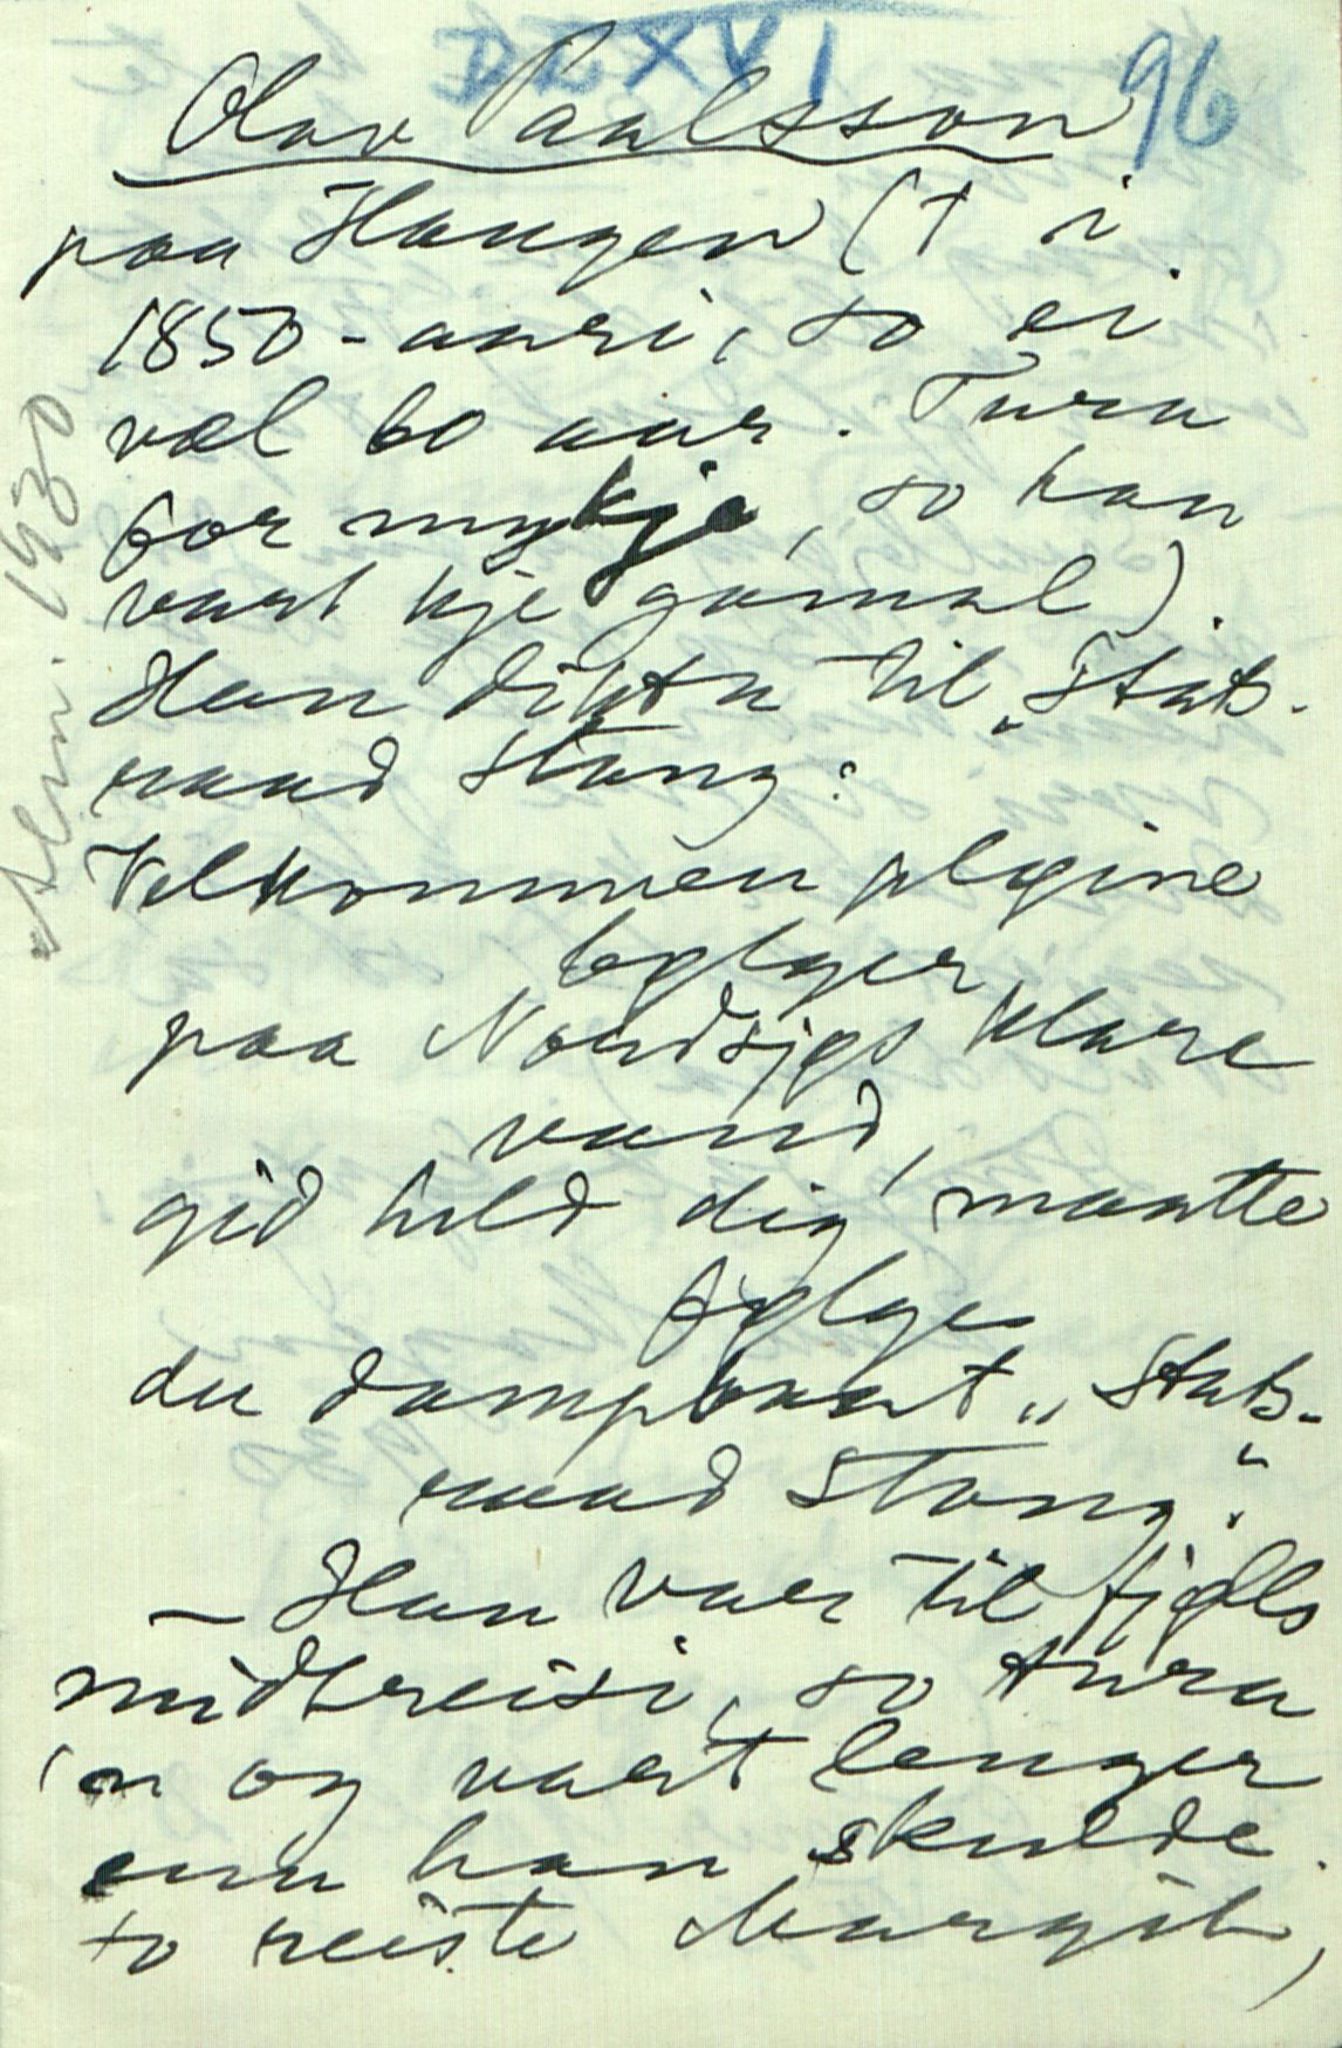 LXXVI 96
Olav Paalsson
paa Haugen († i
1850-aari, so ei
vel 60 aar. Tura
for mykje, so han
vart kje gamal).
Han dikta til "Stats-
raad Stang:
Velkommen pløine
bølger
paa Nordsjøs klare
vand,
gid held dig maatte
følge
du dampbaat "Stats-
raad Stang".
– Han var til fjølls
midtreisi, so tura
'n og vart lenger
enn han skulde.
to reiste Margit,
1930